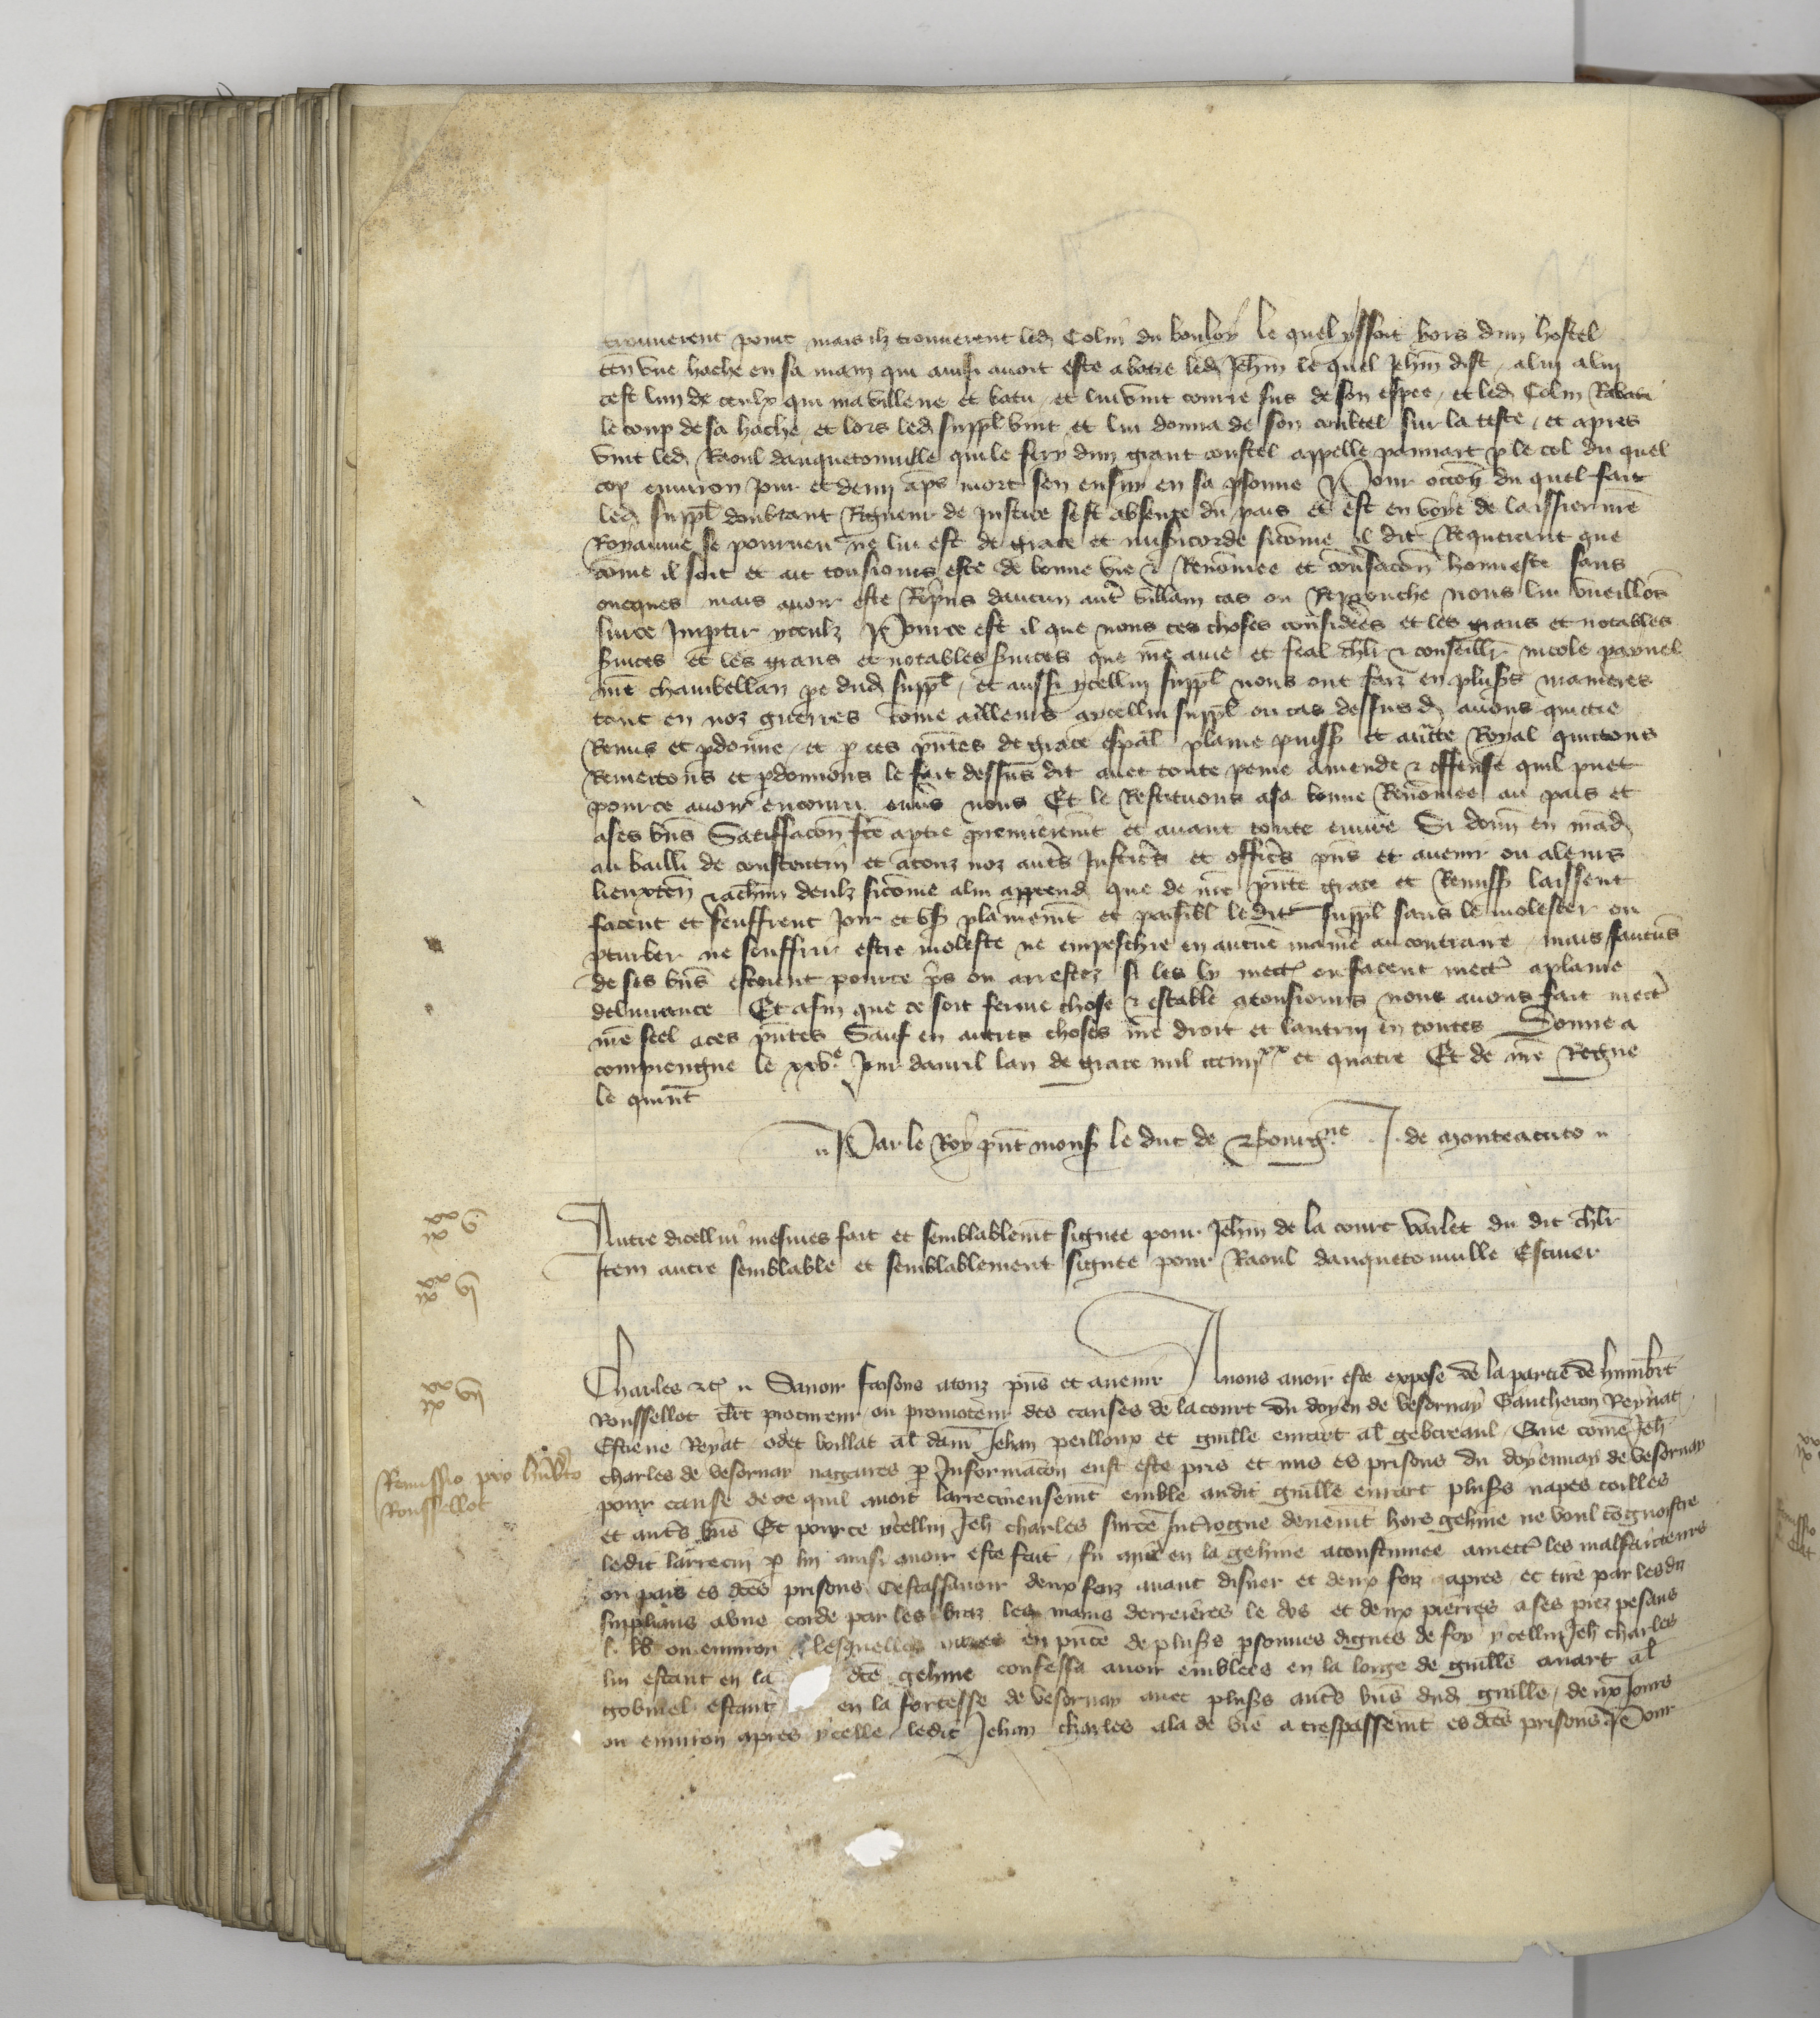 trouverent point mais ilz trouverent led Colin du bouloy le quel yssoit hors dun hostel
ten vne hache en sa main qui ainsi auoit este a batre led Jehan le quel Jehan dist alui alui
cest lun de ceulx qui ma villene et batu et lui vint courre sus de son espee et led Colin Rabati
le coup de sa hache et lors led suppl vint et lui donna de son coultel sur la teste et apres
vint led Raoul danquetonuille qui le fery dun grant coustel appelle pannart p le col du quel
cop enuiron Jour et demi aps mort sen ensuy en sa psonne Pour occon du quel fait
led suppl doubtant Rigueur de Justice sest absente du pais et est en voye de laissier nre
Royaume se pourueu ne lui est de grace et misicorde sicome il dit Requerant que
come il soit et ait tousiours este de bonne vie et Renommee et consacon honneste sans
oncques mais auoir este Repns daucun autre villain cas ou Reprouche nous lui vueillons
surce Imptir yceulz Pource est il que nous ces choses considerees et les grans et notables
suices et les grans et notables suices que nre ame et feal chlr et conseillr nicole paynel
nre chambellan pe dud suppl et aussi ycellui suppl nous ont faiz en plusrs manieres
tant en noz guerres come ailleurs aycellui suppl ou cas dessusd auons quictie
Remis et pdonne et p ces pntes de grace espal plaine puiss et aucte Royal quictons
Remectons et pdonnons le fait dessus dit auec toute peine amende et offense quil puet
pource auoir encouru enuers nous Et le Restituons asa bonne Renommee au pais et
ases bns Satisfacon fce aptie premierement et auant toute euure Si donn en mand
au bailli de coustentin et atouz noz autres Justices et officrs pns et auenir ou aleurs
lieuxten et achun deulz sicome alui apptend que de nre pnte grace et Remiss laissent
facent et seuffrent Joir et vs plainement et paisibl ledit suppl sans le molester ou
pturber ne souffrir estre moleste ne empeschie en aucune maniere au contraire mais saucuns
de ses bns estoient pource ps ou arrestez si les ly mectz ou facent mectr aplaine
deliurance Et afin que ce soit ferme chose et estable atousiours nous auons fait mectr
nre seel aces pntes Sauf en autres choses nre droit et lautruy en toutes Donne a
compiengne le xxve Jour dauril lan de grace mil ccciiijxx et quatre Et de nre Regne
le quint
Par le Roy pnt mons le duc de Bourgne J. de monteacuto
Autre dicellui mesmes fait et semblablement signee pour Jehan de la court varlet du dit chlr
Item autre semblable et semblablement signee pour Raoul danquetonuille Escuier
Charles etc Sauoir faisons atouz pns et auenir Anous auoir este expose de la partie de humbert
Roussellot clrc procureur ou promoteur des causes de la court du doyen de vesoruay Gautheron Reynat
Estiene Reynat odet voillat al dam Jehan peilloux et guille euvart al gebereaul Que come Jeh
charles de vesoruay nagaires p Informacon eust este pris et mis es prisons du doyennay de vesoruay
pour cause de ce quil auoit larrecineusement emble audit guille euvart plusrs napes toilles
et autres bns Et pource ycellui Jeh charles surce Introgue deuement hors gehine ne voul congnoistre
ledit larrecin p lui ainsi auoir este fait fu mis en la gehine acoustumee amectr les malfaicteurs
ou pais es dces prisons Cestassauoir deux foiz auant disner et deux foiz apres et tire par lesdis
supplians avne corde par les braz les mains derrieres le dos et deux pierres a ses piez pesans
l. lb ou enuiron lesquelles en pnce de plusrs psonnes dignes de foy ycellui Jeh charles
lui estant en la dce gehine confessa auoir emblees en la loige de guille auart al
gobriuel estant en la fortesse de vesoruay auec plusrs autres bns dud guille deux Jours
ou enuiron apres ycelle ledit Jehan charles ala de vie a trespassement es dces prisons Pour
ixxx v
ixxx vi
ixxx vii
Remissio pro hub'to
Roussellot